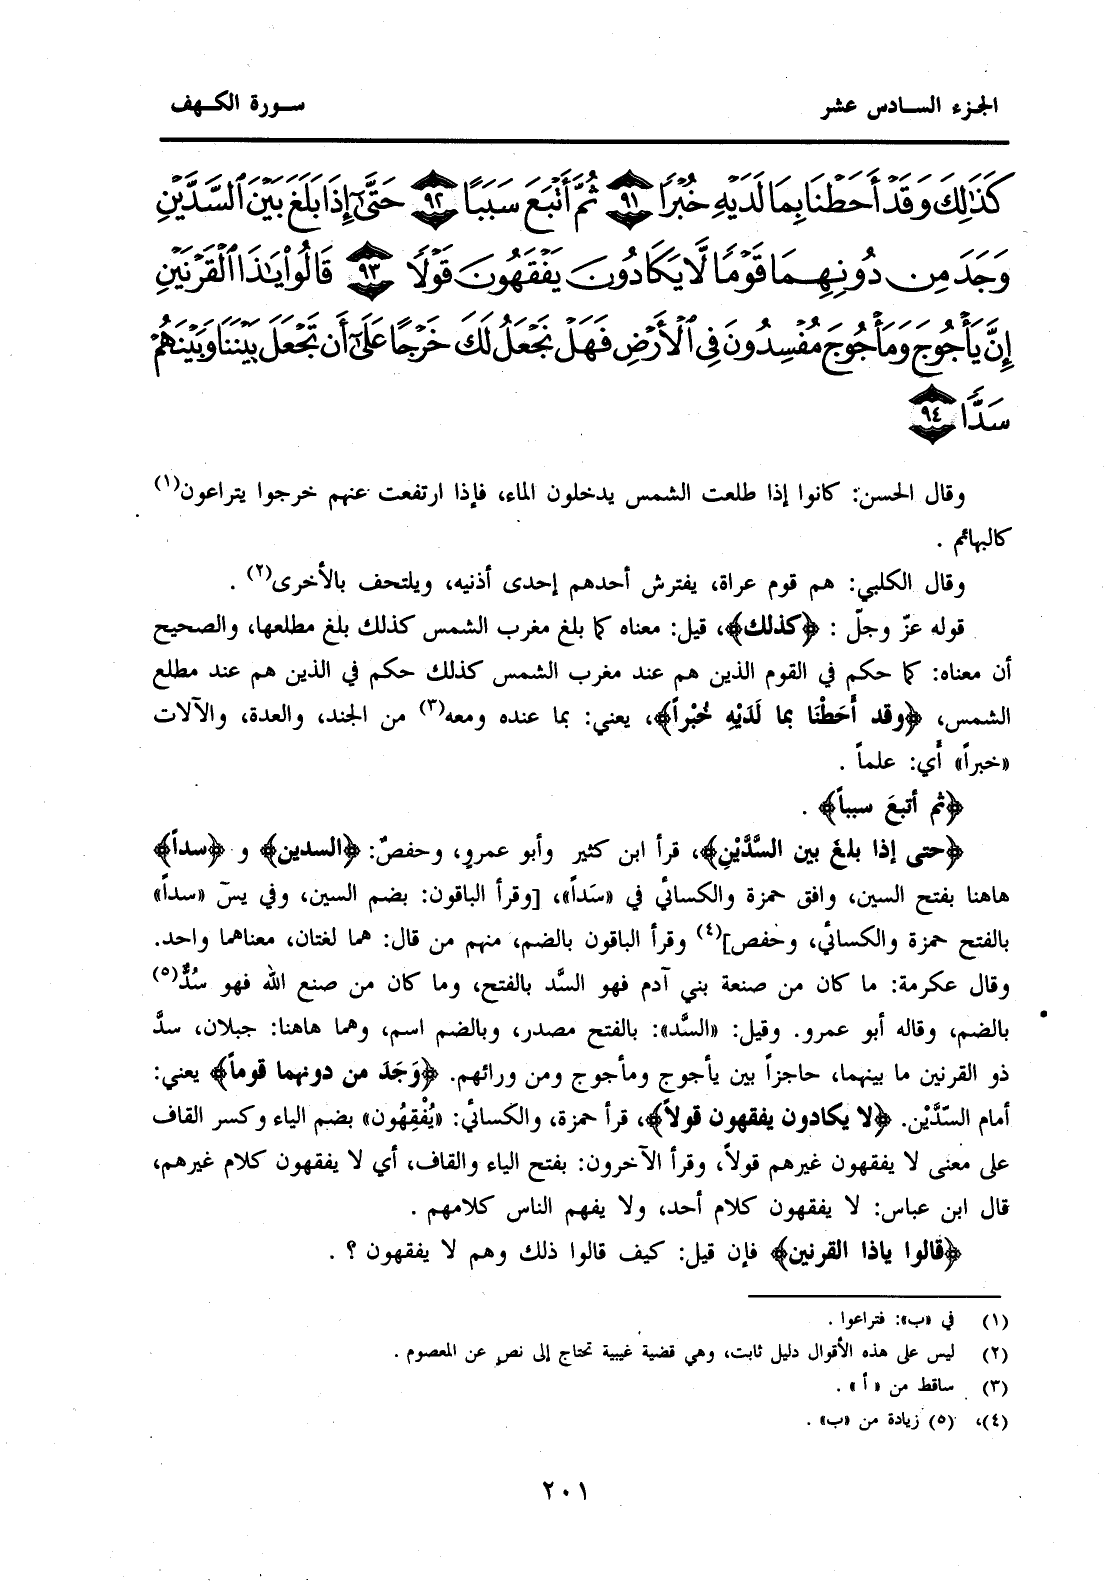 الجزء السادس عشر
سورة الكهف
كَذَٰلِكَ وَقَدْ أَحَطْنَا بِمَا لَدَيْهِ خُبْرًا ٩١ ثُمَّ أَتْبَعَ سَبَبًا ٩٢ حَتَّىٰٓ إِذَا بَلَغَ بَيْنَ ٱلسَّدَّيْنِ
وَجَدَ مِن دُونِهِمَا قَوْمًا لَّا يَكَادُونَ يَفْقَهُونَ قَوْلًا ٩٣ قَالُوا۟ يَٰذَا ٱلْقَرْنَيْنِ
إِنَّ يَأْجُوجَ وَمَأْجُوجَ مُفْسِدُونَ فِى ٱلْأَرْضِ فَهَلْ نَجْعَلُ لَكَ خَرْجًا عَلَىٰٓ أَن تَجْعَلَ بَيْنَنَا وَبَيْنَهُمْ
سَدًّا ٩٤
وقال الحسن: كانوا إذا طلعت الشمس يدخلون الماء، فإذا ارتفعت عنهم خرجوا يتراعون(١)
كالبهائم .
وقال الكلبي: هم قوم عراة، يفترش أحدهم إحدى أذنيه، ويلتحف بالأخرى(٢) .
قوله عزّ وجلّ : ﴿كذلك﴾، قيل: معناه كما بلغ مغرب الشمس كذلك بلغ مطلعها، والصحيح
أن معناه: كما حكم في القوم الذين هم عند مغرب الشمس كذلك حكم في الذين هم عند مطلع
الشمس، ﴿وقد أَحَطْنَا بما لَدَيْهِ خُبْراً﴾، يعني: بما عنده ومعه(٣) من الجند، والعدة، والآلات
«خبراً» أي: علماً .
﴿ثم أتبعَ سبباً﴾ .
﴿حتى إذا بلغَ بين السَّدَّيْنِ﴾، قرأ ابن كثير وأبو عمروٍ، وحفصٌ: ﴿السدين﴾ و ﴿سداً﴾
هاهنا بفتح السين، وافق حمزة والكسائي في «سَداً»، [وقرأ الباقون: بضم السين، وفي يسۤ «سداً»
بالفتح حمزة والكسائي، وحفص](٤) وقرأ الباقون بالضم، منهم من قال: هما لغتان، معناهما واحد.
وقال عكرمة: ما كان من صنعة بني آدم فهو السَّد بالفتح، وما كان من صنع الله فهو سُدٌّ(٥)
بالضم، وقاله أبو عمرو. وقيل: «السَّد»: بالفتح مصدر، وبالضم اسم، وهما هاهنا: جبلان، سدَّ
ذو القرنين ما بينهما، حاجزاً بين يأجوج ومأجوج ومن ورائهم. ﴿وَجَدَ من دونهما قوماً﴾ يعني:
أمام السّدَّيْن. ﴿لا يكادون يفقهون قولاً﴾، قرأ حمزة، والكسائي: «يُفْقِهُون» بضم الياء وكسر القاف
على معنى لا يفقهون غيرهم قولاً، وقرأ الآخرون: بفتح الياء والقاف، أي لا يفقهون كلام غيرهم،
قال ابن عباس: لا يفقهون كلام أحد، ولا يفهم الناس كلامهم .
﴿قالوا ياذا القرنين﴾ فإن قيل: كيف قالوا ذلك وهم لا يفقهون ؟ .
(١) في «ب»: فتراعوا .
(٢) ليس على هذه الأقوال دليل ثابت، وهي قضية غيبية تحتاج إلى نصٍ عن المعصوم .
(٣) ساقط من « أ » .
(٤)، (٥) زيادة من «ب» .
٢٠١